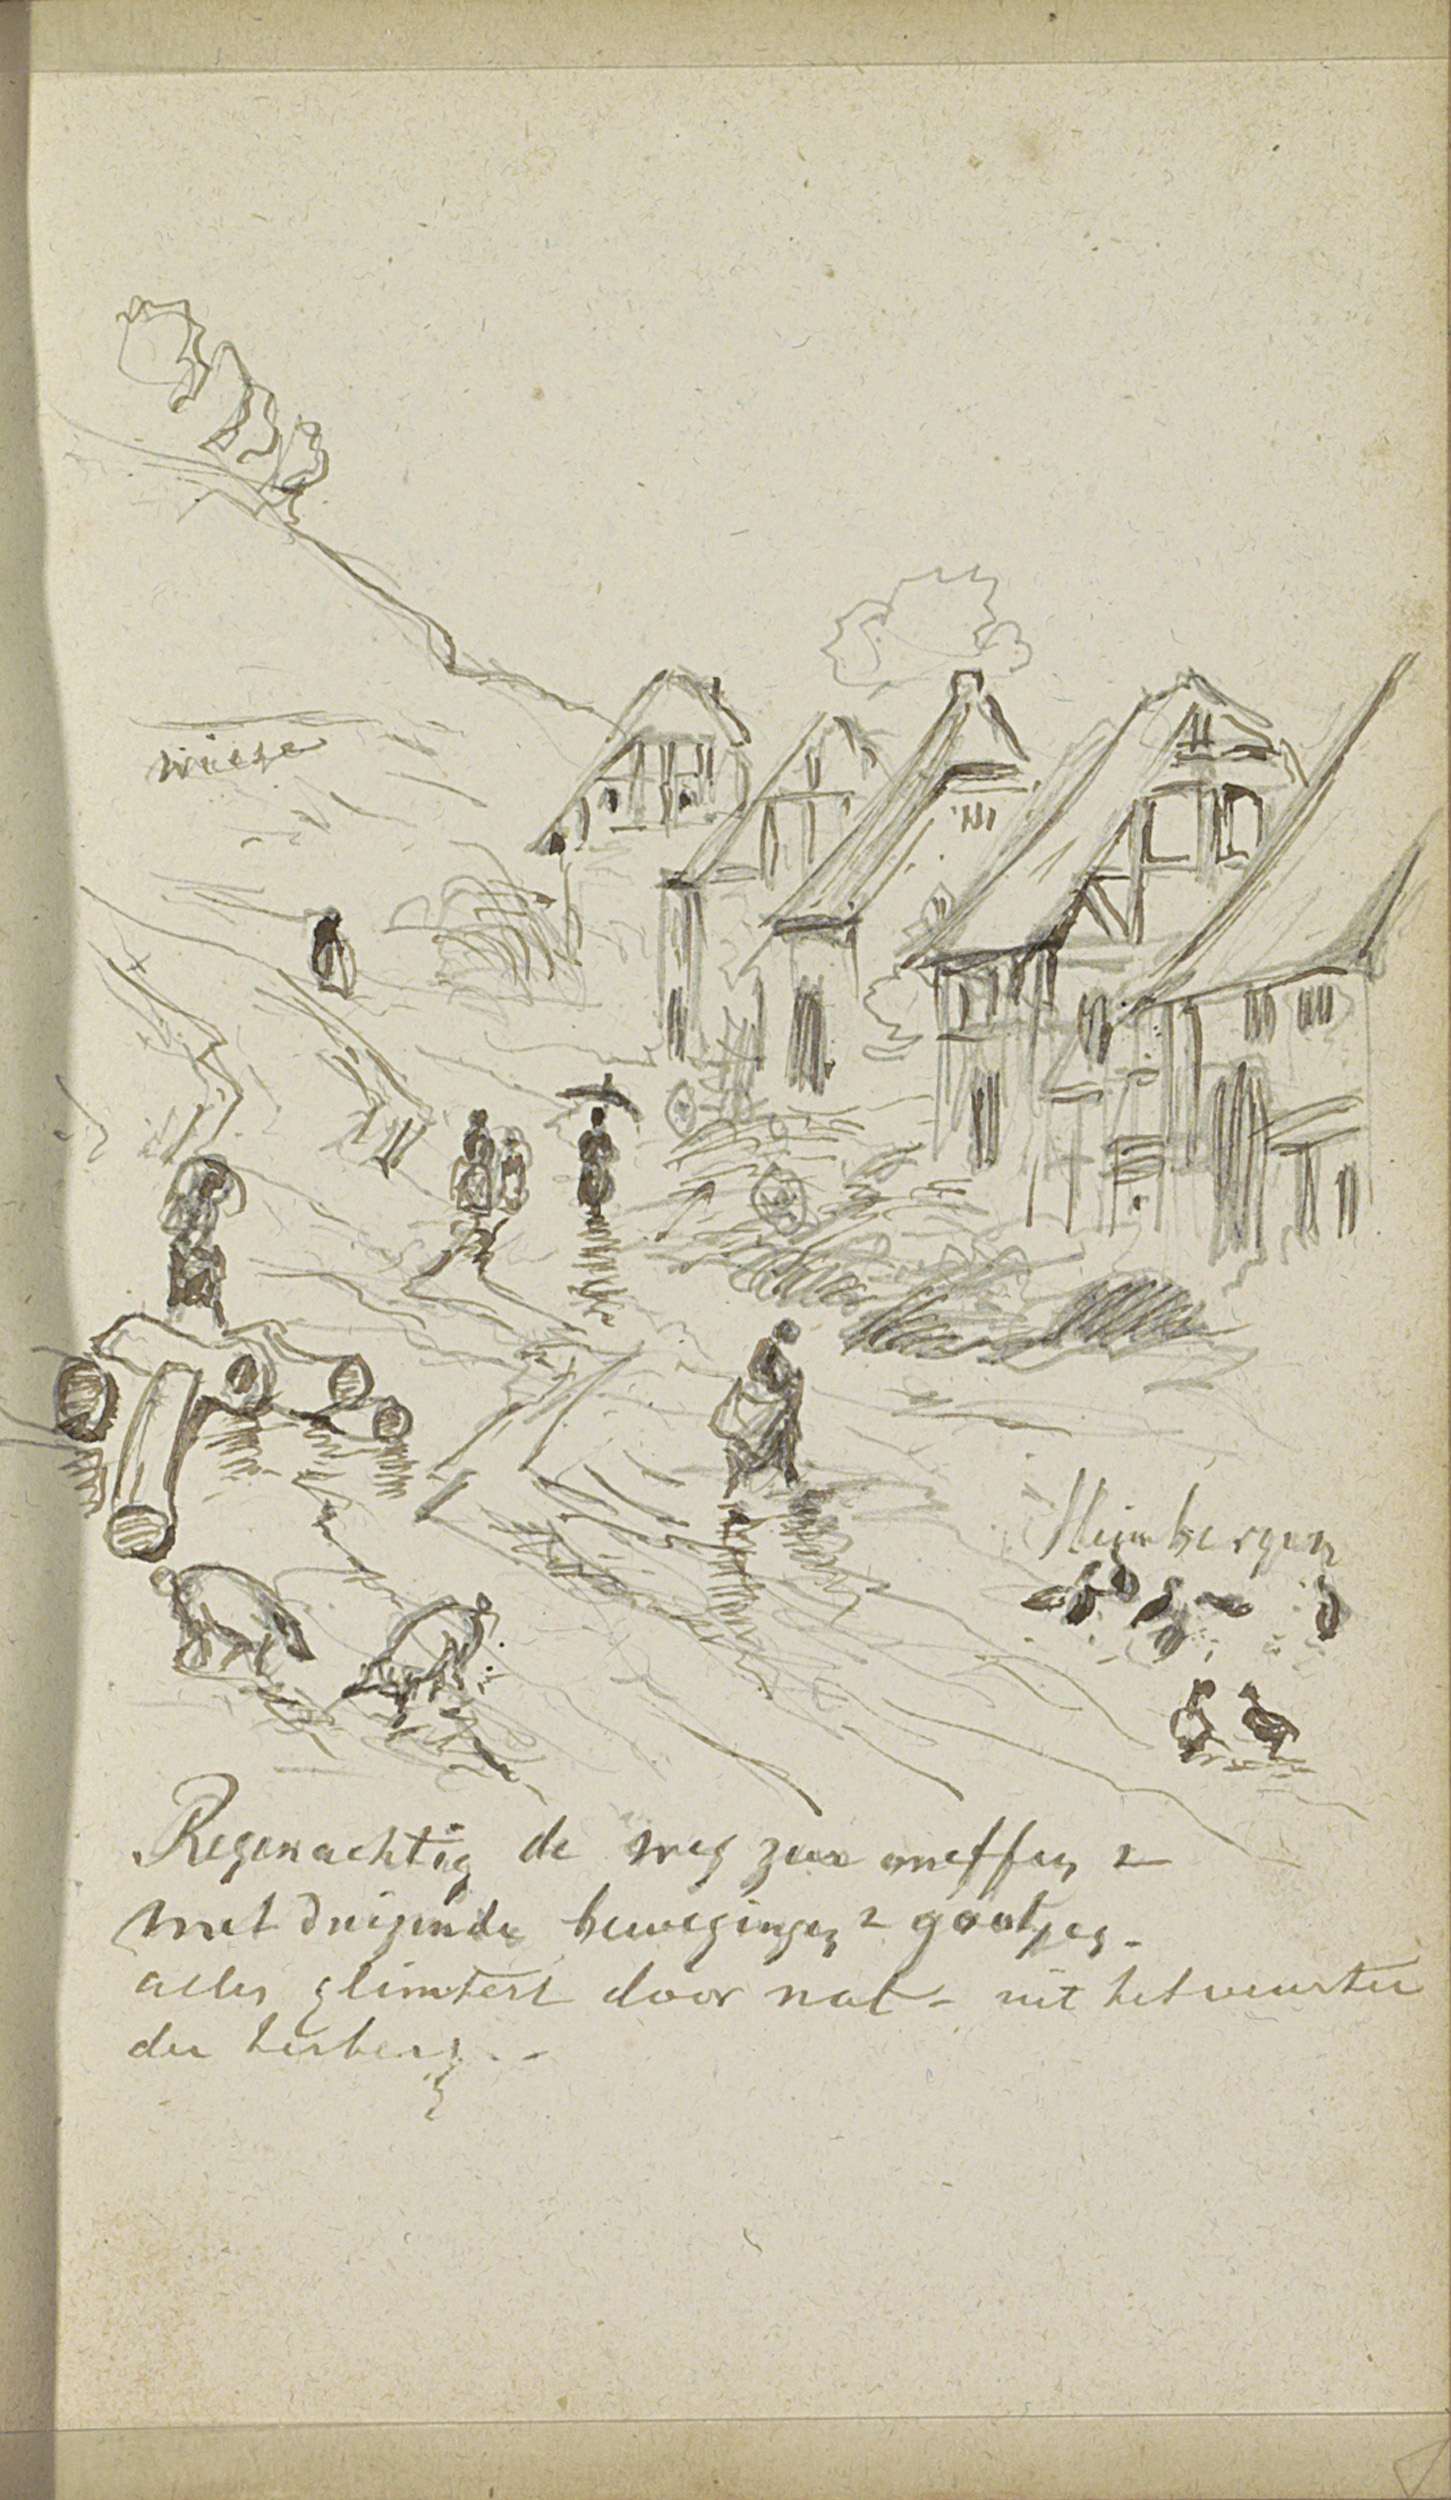 wiese
Heimbergen
Regenachtig de weg zeer oneffen &
met duizende bewegingen & gootjes -
alles glinstert door nat - uit het venster
der herberg - -